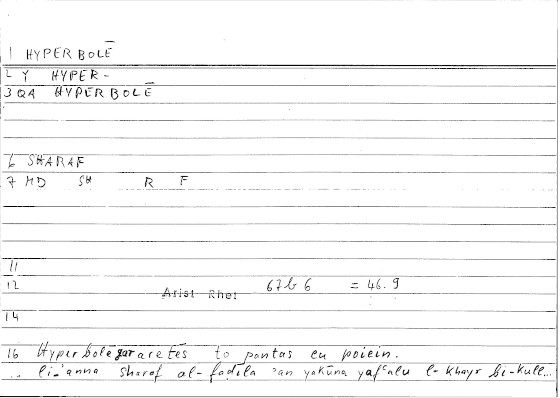 1 HYPERBOLĒ
2 Y HYPER-
3 QA HYPERBOLĒ
6 SHARAF
7 MD SH R F
11
12 Arist Rhet 67b6 = 46.9
14
16 Hyperbolē gar aretēs to pantas eu poiein.
.. li-'anna sharaf al-faḍīla 'an yakūna yafʿalu l-khayr bi-kull...